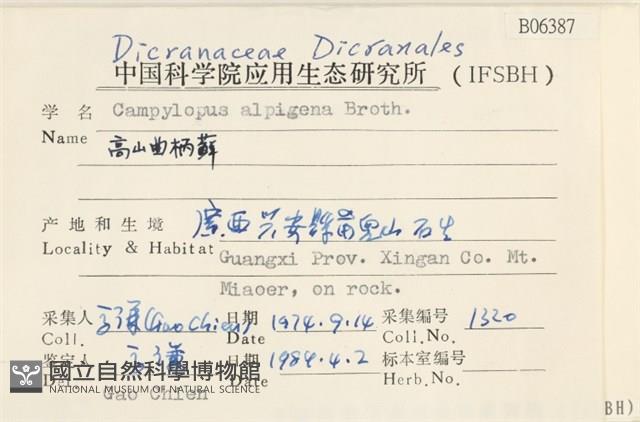 B06387
Dicranaceae Dicranales
中国科学院应用生态研究所 (IFSBH)
学名 Campylopus alpigena Broth.
Name
高山曲柄蘚
产地和生境 廣西兴安縣苗児山石生
Locality & Habitat Guangxi Prov. Xingan Co. Mt.
Miaoer, on rock.
采集人 (Gao Chien) 日期 1974.9.14 采集编号 1320
Coll. Date Coll.No.
鉴定人 日期 1984.4.2 标本室编号
Det. Date Herb.No.
Gao Chien
國立自然科學博物館
NATIONAL MUSEUM OF NATURAL SCIENCE
BH)